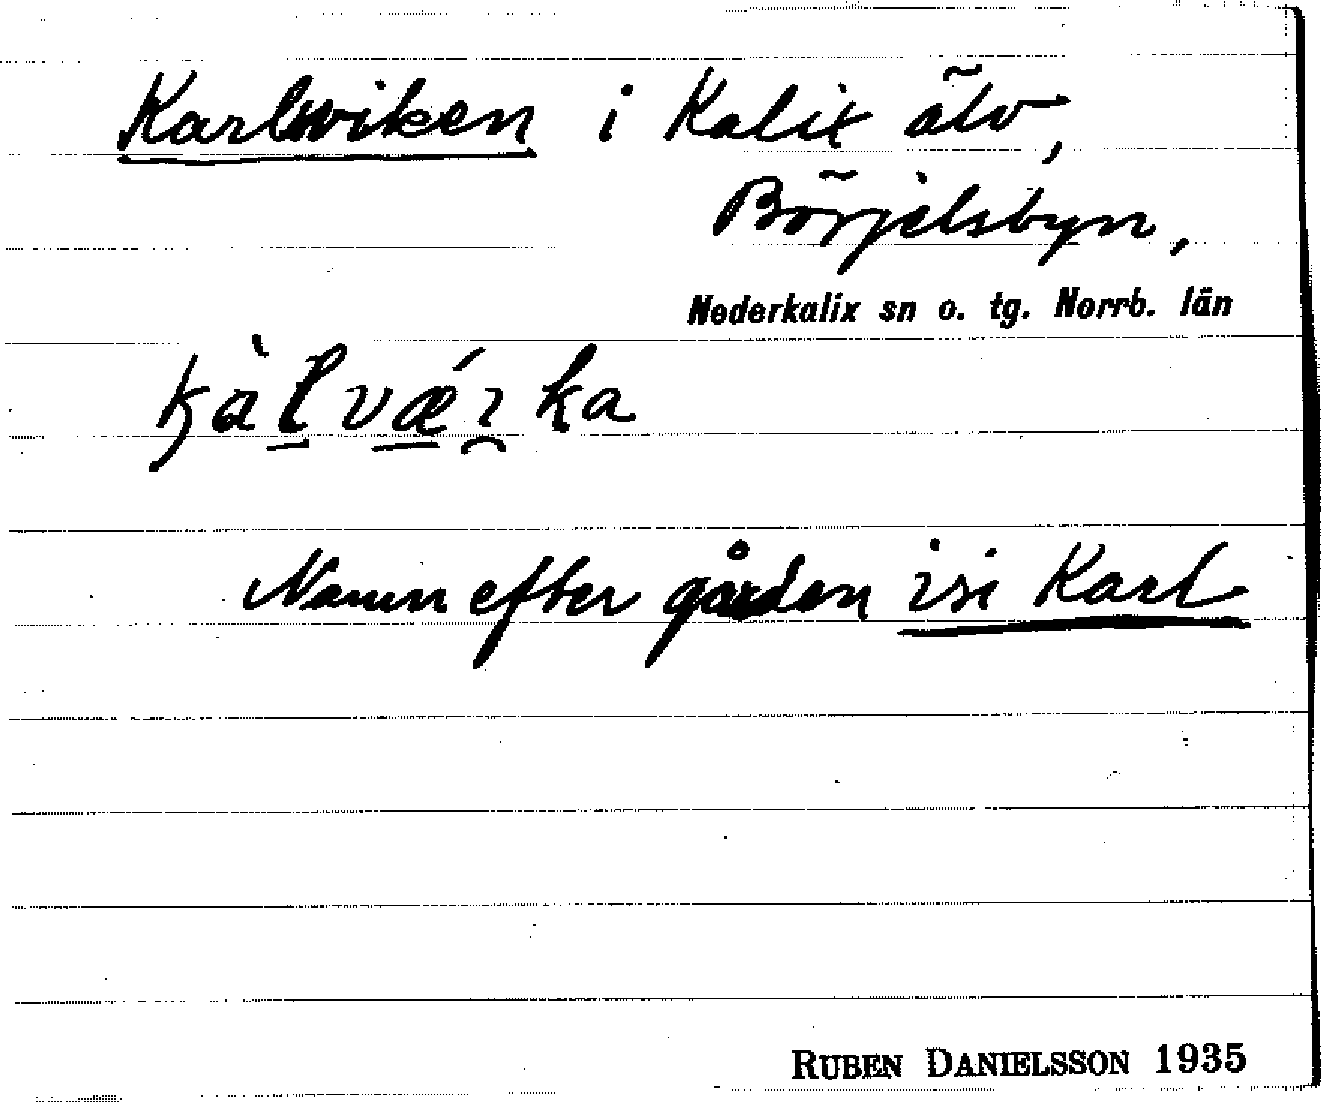 Karlsviken i Kalix älv,
Börjelsbyn,
Nederkalix sn o. tg. Norrb. län
Namn efter gården isi Karl
RUBEN DANIELSSON 1935